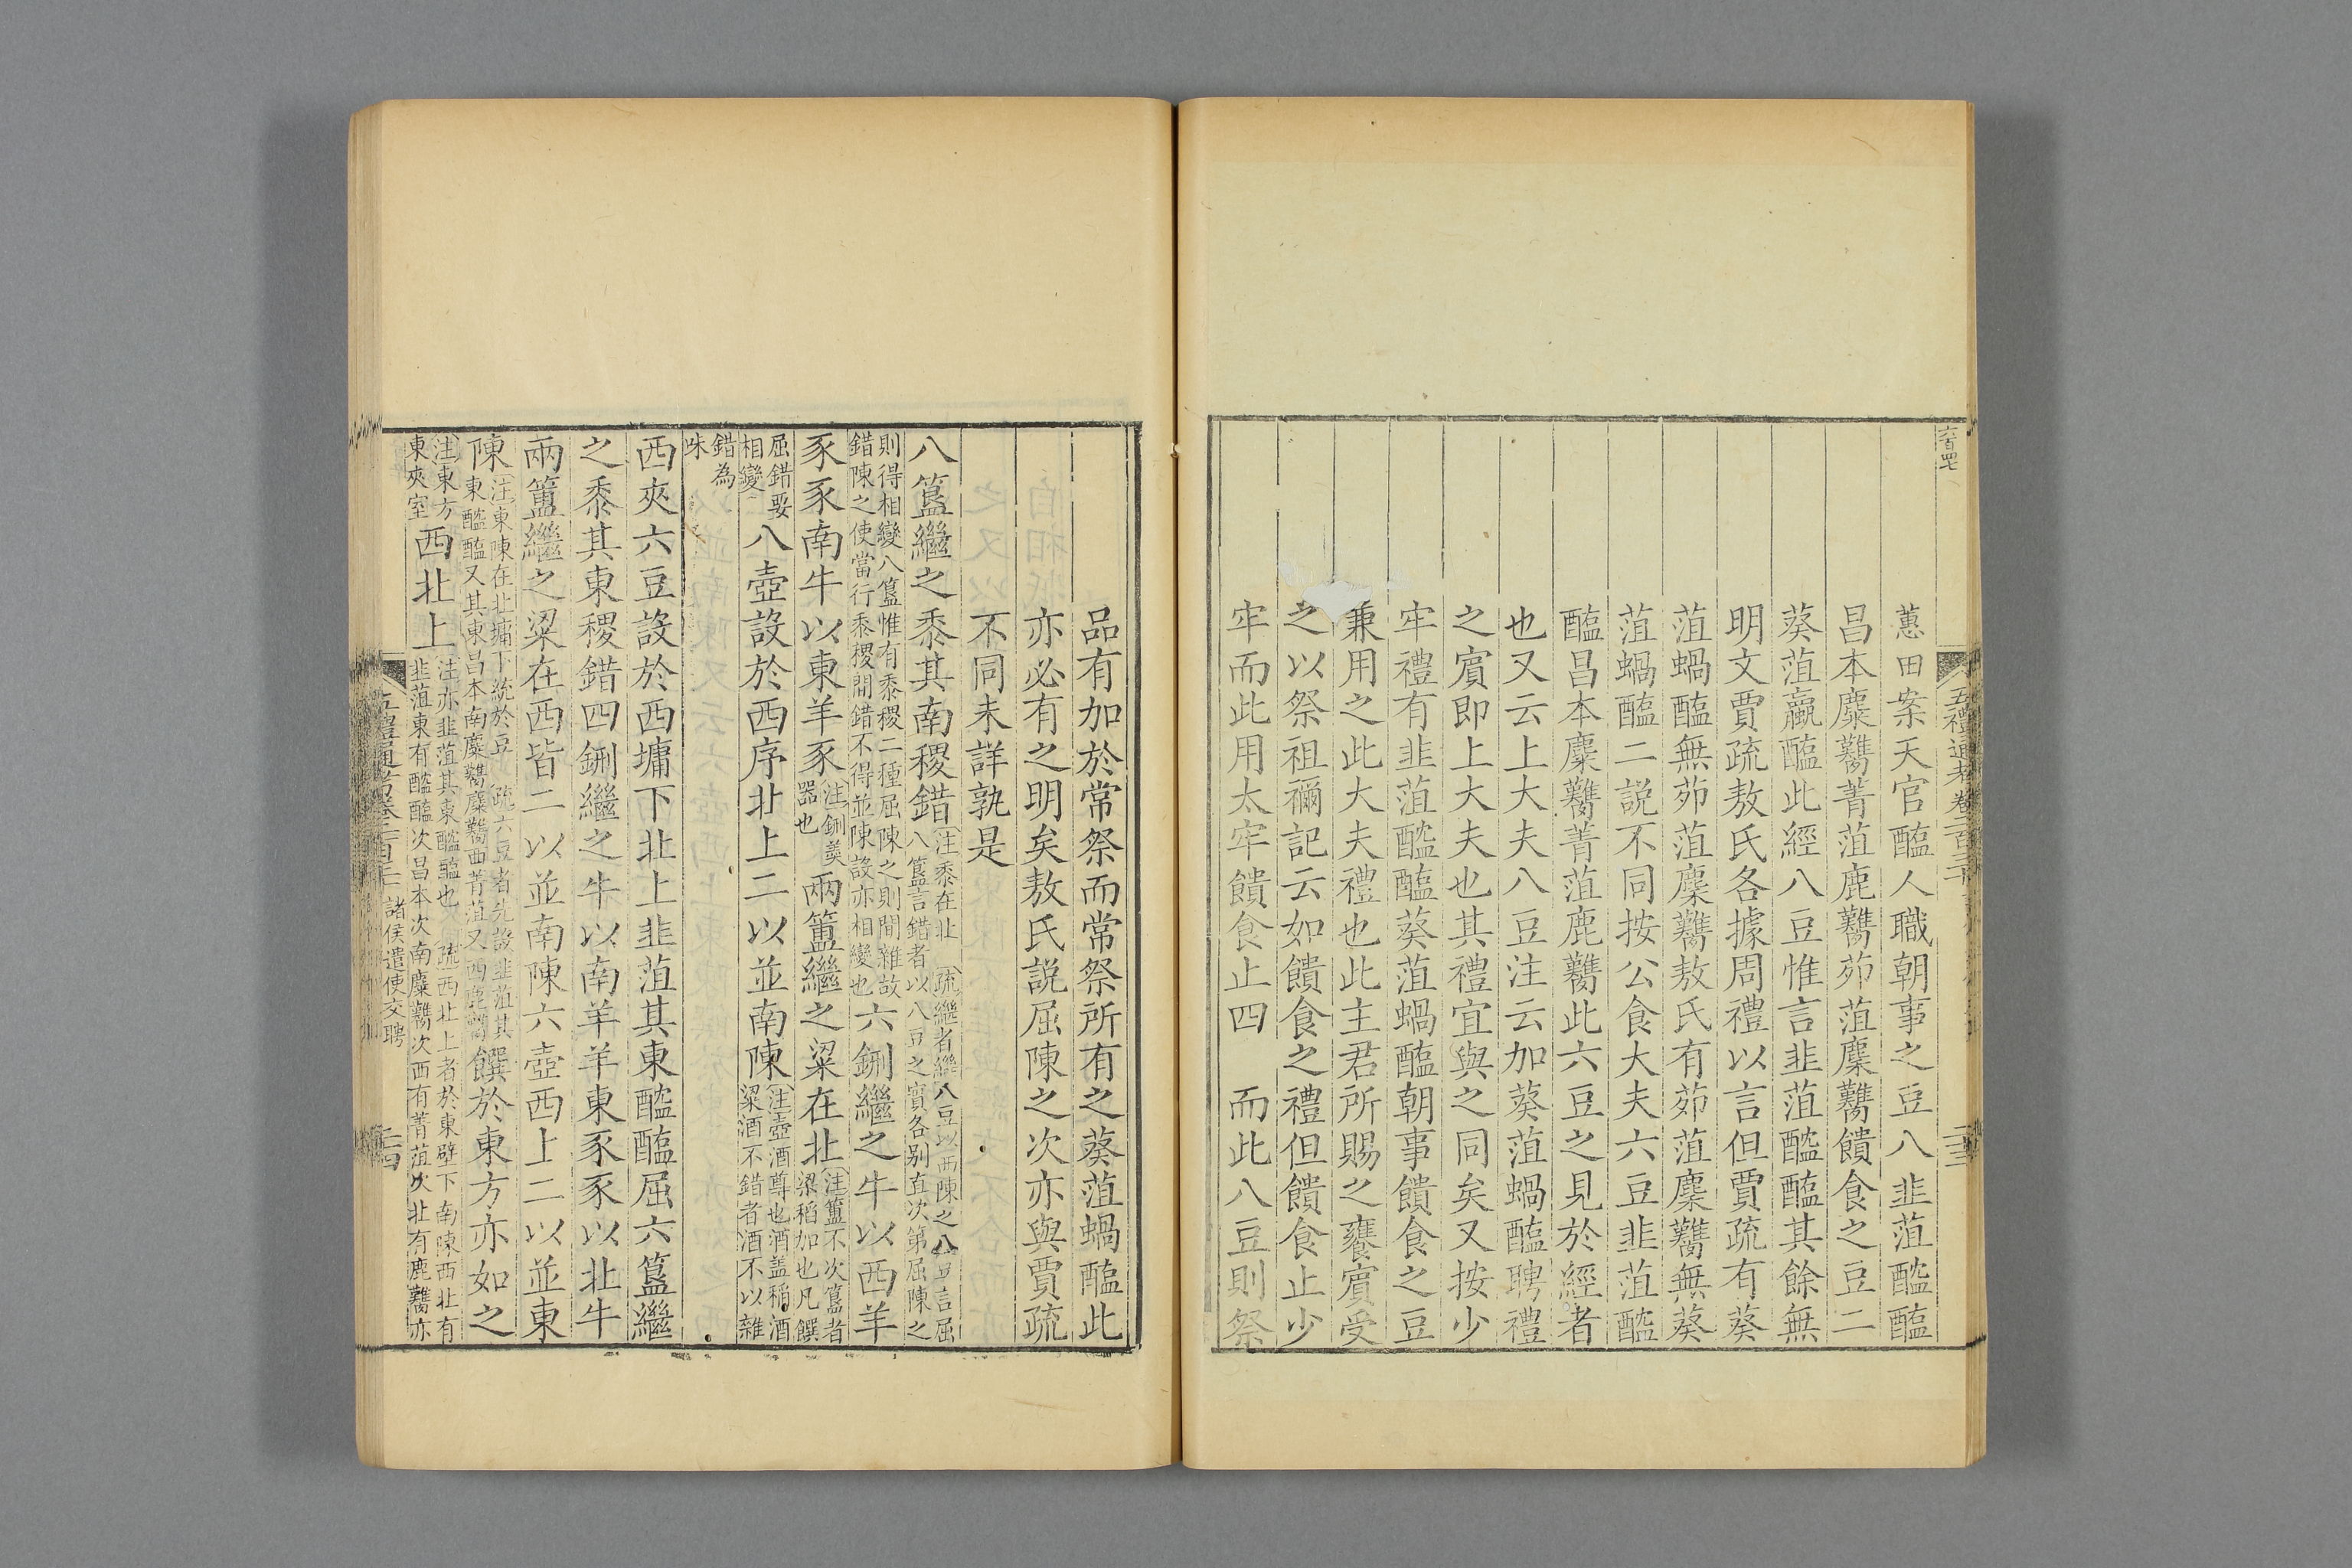 六百四七
五禮通考卷二百三十
二十三
蕙田案天官醢人職朝事之豆八韭菹醓醢
昌本麋臡菁菹鹿臡茆菹麇臡饋食之豆二
葵菹蠃醢此經八豆惟言韭菹醓醢其餘無
明文賈疏敖氏各據周禮以言但賈疏有葵
菹蝸醢無茆菹麇臡敖氏有茆菹麇臡無葵
菹蝸醢二説不同按公食大夫六豆韭菹醓
醢昌本麋臡菁菹鹿臡此六豆之見於經者
也又云上大夫八豆注云加葵菹蝸醢聘禮
之賓即上大夫也其禮宜與之同矣又按少
牢禮有韭菹醓醢葵菹蝸醢朝事饋食之豆
兼用之此大夫禮也此主君所賜之饔賓受
之以祭祖禰記云如饋食之禮但饋食止少
牢而此用太牢饋食止四 而此八豆則祭
品有加於常祭而常祭所有之葵菹蝸醢此
亦必有之明矣敖氏説屈陳之次亦與賈疏
不同未詳孰是
八簋繼之黍其南稷錯注黍在北 疏繼者繼八豆以西陳之八豆言屈
八簋言錯者以八豆之實各别直次第屈陳之
則得相變八簋惟有黍稷二種屈陳之則間雜故
錯陳之使當行黍稷間錯不得並陳設亦相變也六鉶繼之牛以西羊
豕豕南牛以東羊豕注鉶羮
器也兩簠繼之粱在北注簠不次簋者
粱稻加也凡饌
屈錯要
相變八壺設於西序北上二以並南陳注壺酒尊也酒蓋稻酒
粱酒不錯者酒不以雜
錯為
味
西夾六豆設於西墉下北上韭菹其東醓醢屈六簋繼
之黍其東稷錯四鉶繼之牛以南羊羊東豕豕以北牛
兩簠繼之粱在西皆二以並南陳六壺西上二以並東
陳注東陳在北墉下統於豆 疏六豆者先設韭菹其
東醓醢又其東昌本南麋臡麋臡西菁菹又西鹿臡饌於東方亦如之
注東方
東夾室西北上注亦韭菹其東醓醢也 疏西北上者於東壁下南陳西北有
韭菹東有醓醢次昌本次南麋臡次西有菁菹次北有鹿臡亦
五禮通考卷二百三十 諸侯遣使交聘
二十四